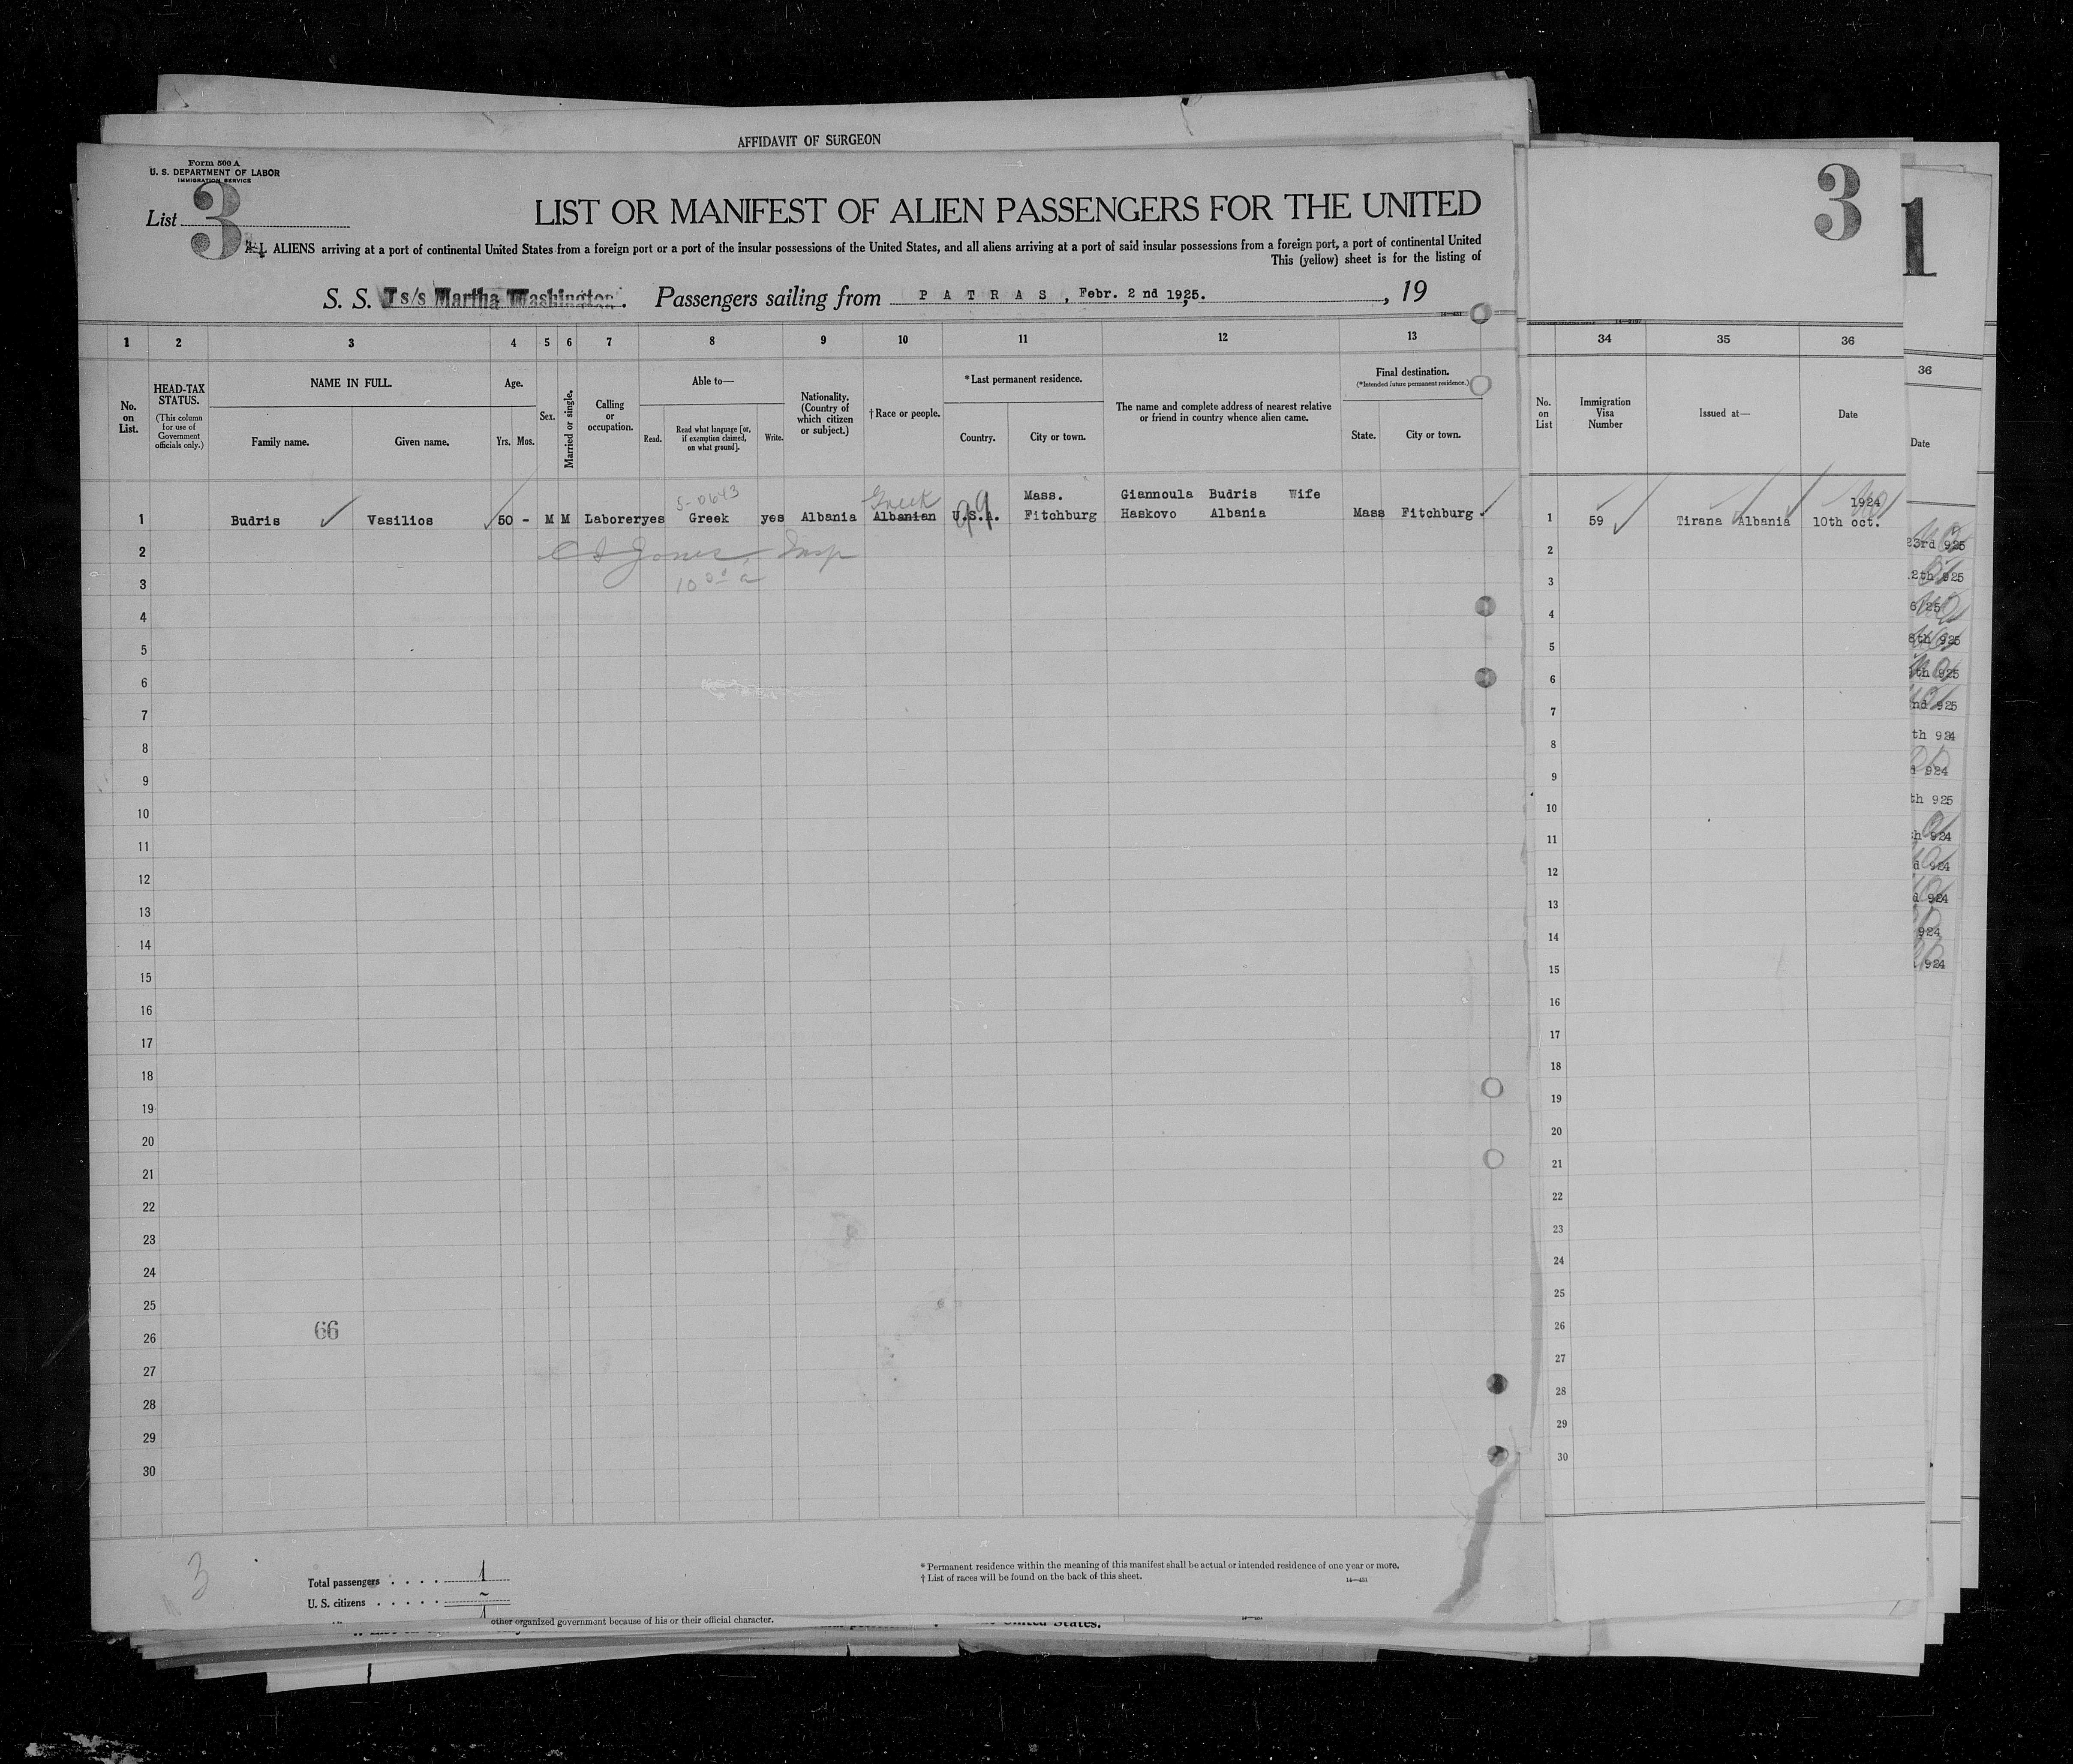 AFFIDAVIT OF SURGEON
Form 500 A
U. S. DEPARTMENT OF LABOR
IMMIGRATION SERVICE
List 3
LIST OR MANIFEST OF ALIEN PASSENGERS FOR THE UNITED
ALL ALIENS arriving at a port of continental United States from a foreign port or a port of the insular possessions of the United States, and all aliens arriving at a port of said insular possessions from a foreign port, a port of continental United
This (yellow) sheet is for the listing of
S. S. Ts/s Martha Washington. Passengers sailing from PATRAS, Febr. 2 nd 1925. , 19
1 2 3 4 5 6 7 8 9 10 11 12 13
No. on List.
HEAD-TAX STATUS.
(This column for use of Government officials only.)
NAME IN FULL.
Family name. Given name.
Age.
Yrs. Mos.
Sex.
Married or single.
Calling or occupation.
Able to—
Read. Read what language [or, if exemption claimed, on what ground]. Write.
Nationality. (Country of which citizen or subject.)
†Race or people.
*Last permanent residence.
Country. City or town.
The name and complete address of nearest relative or friend in country whence alien came.
Final destination.
(*Intended future permanent residence.)
State. City or town.
5-0643 Greek Mass. Giannoula Budris Wife
1 Budris Vasilios 50 - M M Laborer yes Greek yes Albania Albanian U.S.A. Fitchburg Haskovo Albania Mass Fitchburg
2 Jones, Insp
3 10 00 a
4
5
6
7
8
9
10
11
12
13
14
15
16
17
18
19
20
21
22
23
24
25
26 66
27
28
29
30
3
Total passengers . . . . 1
U. S. citizens . . . . . ~
1
* Permanent residence within the meaning of this manifest shall be actual or intended residence of one year or more.
† List of races will be found on the back of this sheet.
14—431
other organized government because of his or their official character.
United States.
3
34 35 36
No. on List
Immigration Visa Number
Issued at—
Date
1924
1 59 Tirana Albania 10th oct.
2
3
4
5
6
7
8
9
10
11
12
13
14
15
16
17
18
19
20
21
22
23
24
25
26
27
28
29
30
1
36
Date
23rd 925
12th 925
6/25
8th 925
th 925
nd 925
th 924
d 924
th 925
h 924
d 924
d 924
924
924